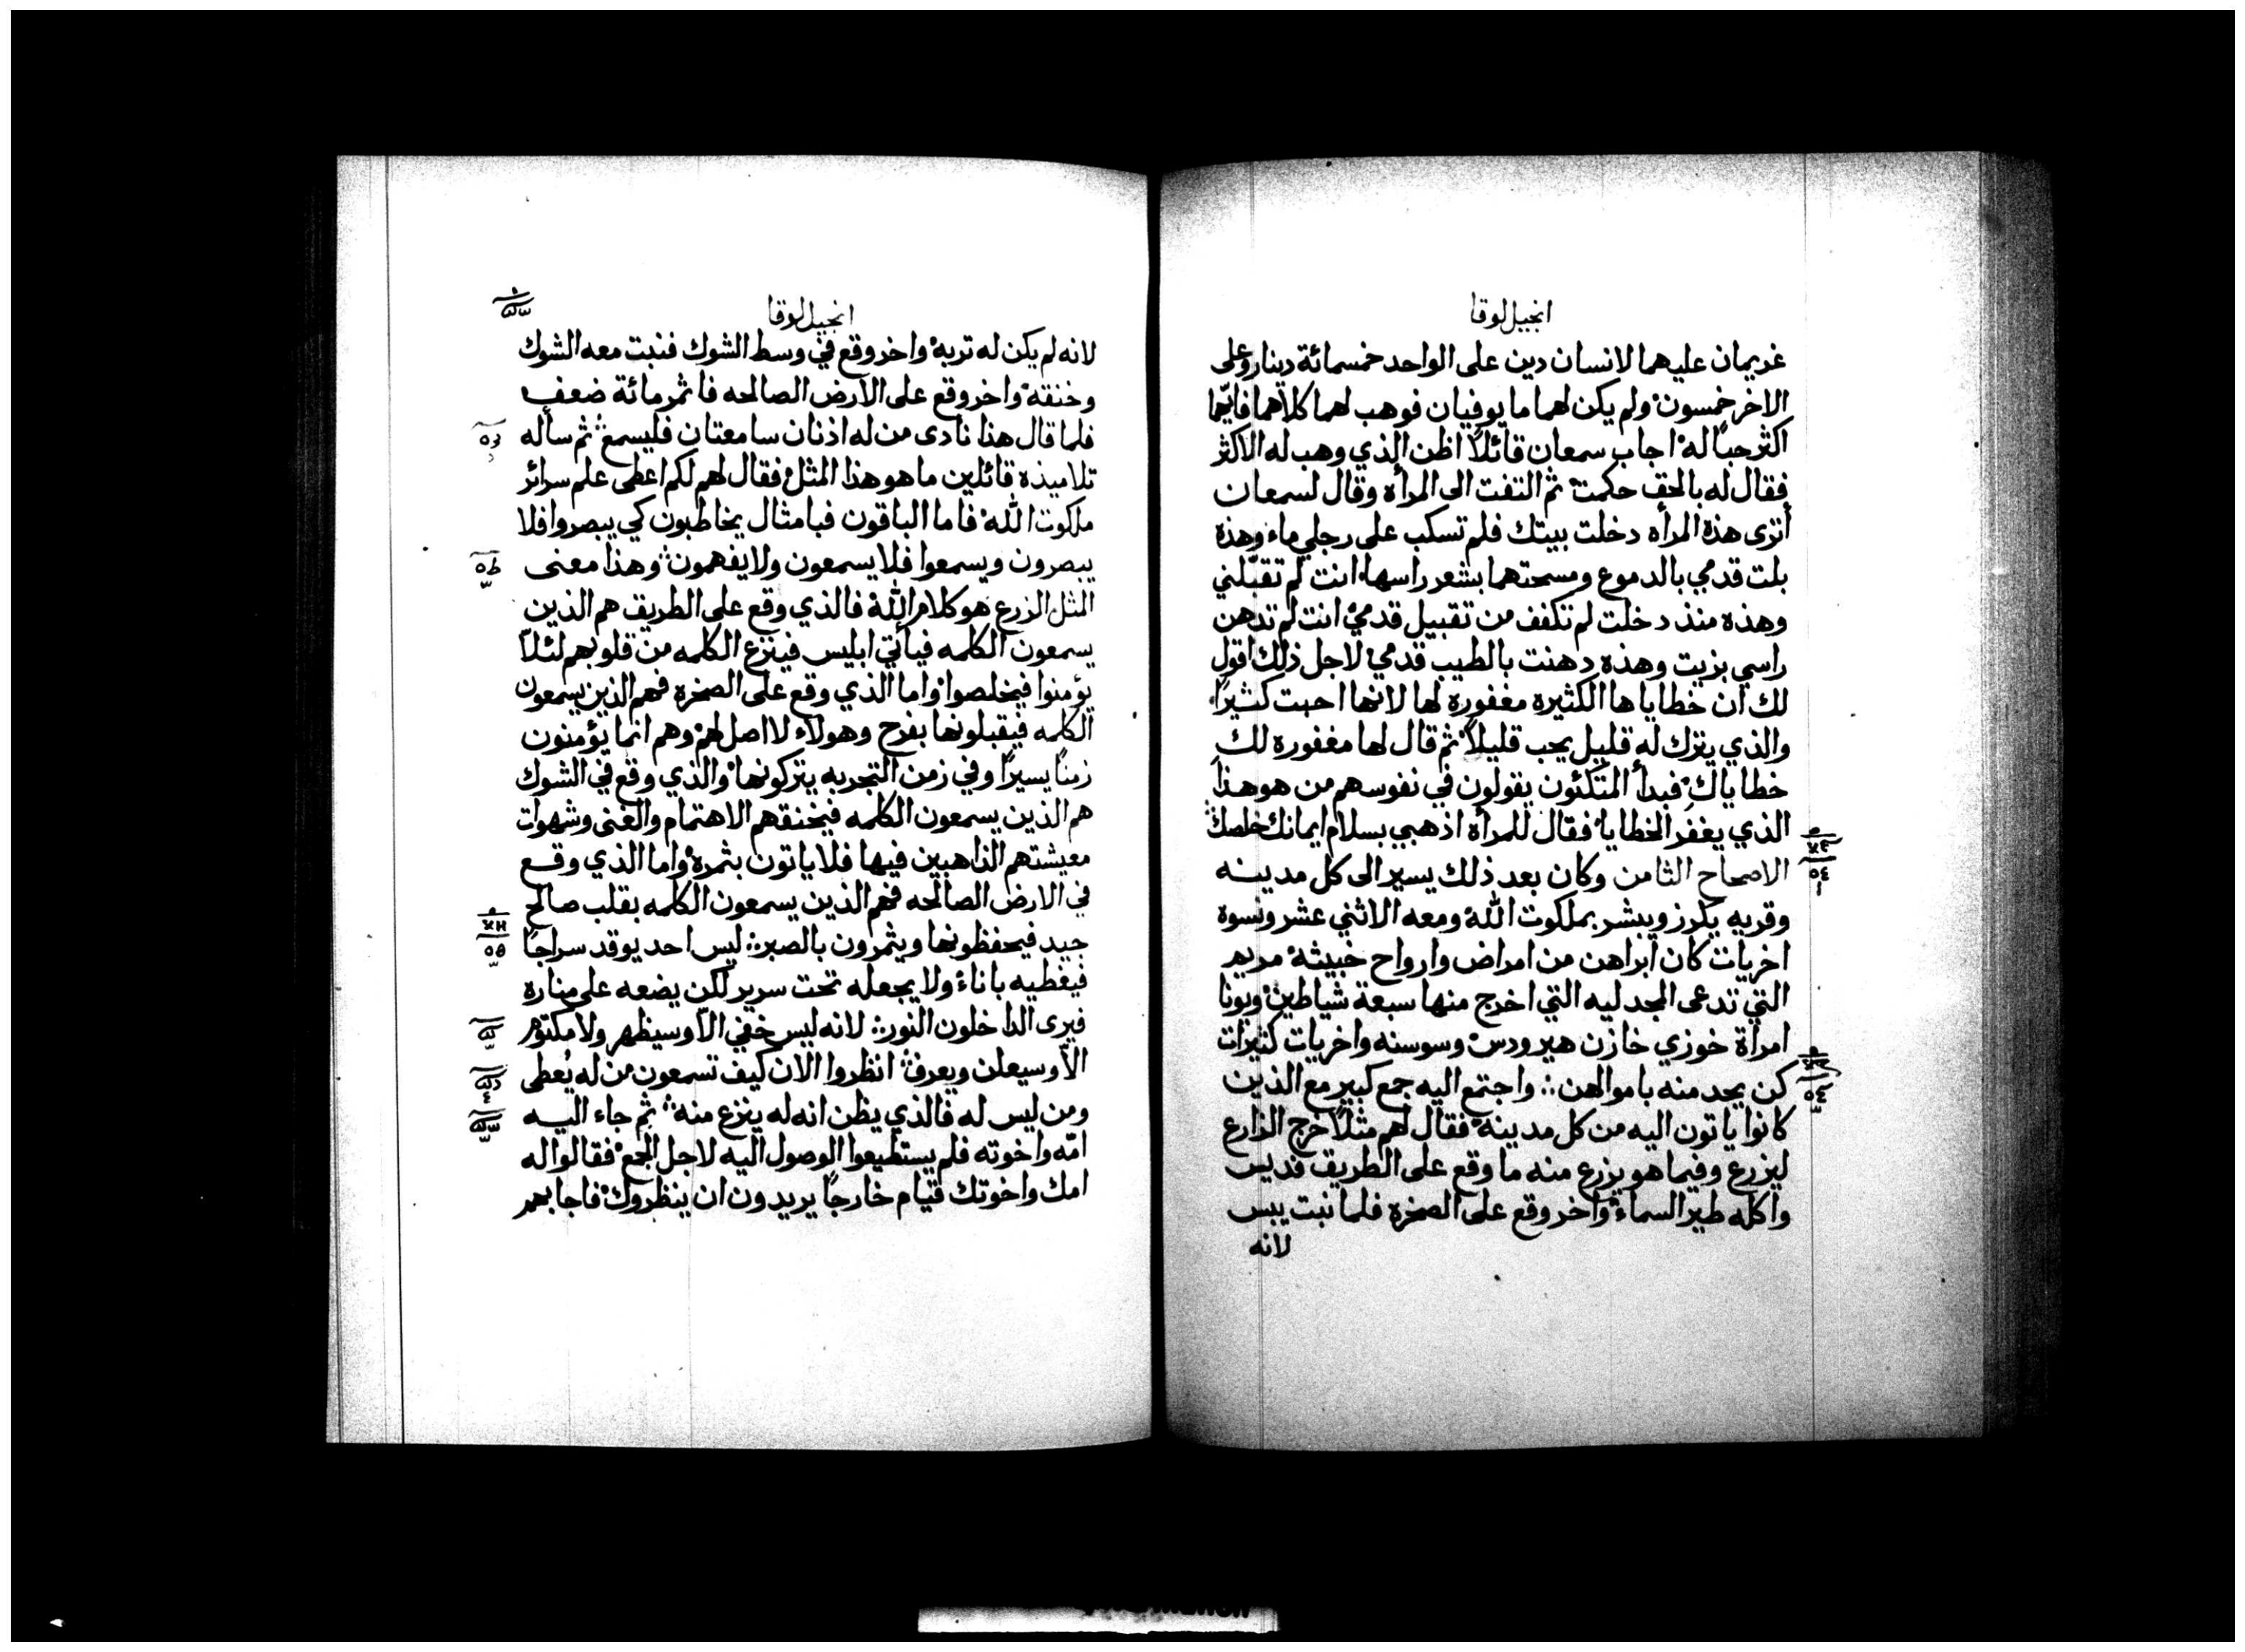 انجيل لوقا
غريمان عليهما لانسان دين على الواحد خمسمائة دينار وعلى
الاخر خمسون ولم يكن لهما ما يوفيان فوهب لهما كلاهما فايّهما
اكثر حبًا له اجاب سمعان قائلاً اظن الذي وهب له الاكثر
فقال له بالحق حكمت ثم التفت الى المرأه وقال لسمعان
أترى هذه المرأه دخلت بيتك فلم تسكب على رجلي ماء وهذه
بلت قدمي بالدموع ومسحتهما بشعر راسها انت لم تقبّلني
وهذه منذ دخلت لم تكفف من تقبيل قدميّ انت لم تدهن
راسي بزيت وهذه دهنت بالطيب قدمي لاجل ذلك اقول
لك ان خطاياها الكثيره مغفوره لها لانها احبت كثيرًا
والذي يترك له قليل يحب قليلاً ثم قال لها مغفوره لك
خطاياكِ فبدأ المتكئون يقولون في نفوسهم من هو هذا
الذي يغفر الخطايا فقال للمرأه اذهبي بسلام ايمانك خلصك
الاصحاح الثامن وكان بعد ذلك يسير الى كل مدينه
وقريه يكرز ويبشر بملكوت الله ومعه الاثني عشر ونسوة
اخريات كان ابراهن من امراض وارواح خبيثه مريم
التي تدعى المجدليه التي اخرج منها سبعة شياطين ويونا
امراة خوزي خازن هيرودس وسوسنه واخريات كثيرات
كن يخدمنه باموالهن ∴ واجتمع اليه جمع كبير مع الذين
كانوا ياتون اليه من كل مدينه فقال لهم مثلاً خرج الزارع
ليزرع وفيما هو يزرع منه ما وقع على الطريق فديس
واكله طير السماء واخر وقع على الصخره فلما نبت يبس
لانه
انجيل لوقا
لانه لم يكن له تربه واخر وقع في وسط الشوك فنبت معه الشوك
وخنقه واخر وقع على الارض الصالحه فاثمر مائة ضعف
فلما قال هذا نادى من له اذنان سامعتان فليسمع ثم سأله
تلاميذه قائلين ما هو هذا المثل فقال لهم لكم اعطى علم سرائر
ملكوت الله فاما الباقون فبامثال يخاطبون كي يبصروا فلا
يبصرون ويسمعوا فلا يسمعون ولا يفهمون وهذا معنى
المثل الزرع هو كلام الله فالذي وقع على الطريق هم الذين
يسمعون الكلمه فيأتي ابليس فينزع الكلمه من قلوبهم لئلاّ
يؤمنوا فيخلصوا واما الذي وقع على الصخره فهم الذين يسمعون
الكلمه فيقبلونها بفرح وهولاء لا اصل لهم وهم انما يؤمنون
زمنًا يسيرًا وفي زمن التجربه يتركونها والذي وقع في الشوك
هم الذين يسمعون الكلمه فيخنقهم الاهتمام والغنى وشهوات
معيشتهم الذاهبين فيها فلا ياتون بثمره واما الذي وقع
في الارض الصالحه فهم الذين يسمعون الكلمه بقلب صالح
جيد فيحفظونها ويثمرون بالصبر ∴ ليس احد يوقد سراجًا
فيغطيه باناء ولا يجعله تحت سرير لكن يضعه على مناره
فيرى الداخلون النور ∴ لانه ليس خفي الاّ وسيظهر ولا مكتوم
الاّ وسيعلن ويعرف انظروا الان كيف تسمعون من له يُعطى
ومن ليس له فالذي يظن انه له ينزع منه ثم جاء اليه
امّه واخوته فلم يستطيعوا الوصول اليه لاجل الجمع فقالوا له
امك واخوتك قيام خارجًا يريدون ان ينظروك فاجابهم